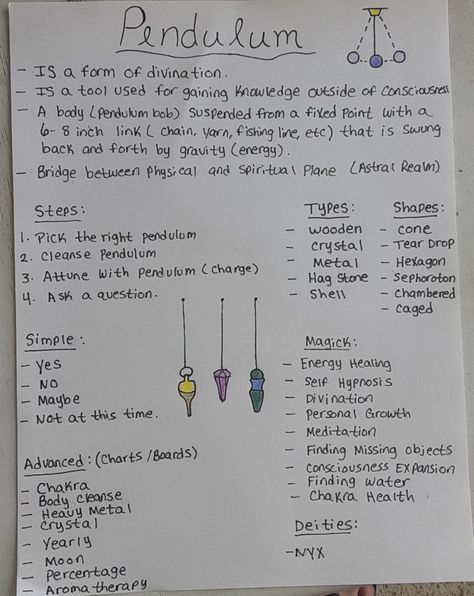 Pendulum
- Is a form of divination.
- Is a tool used for gaining knowledge outside of consciousness
- A body (Pendulum bob) suspended from a fixed point with a
6-8 inch link (chain, yarn, fishing line, etc) that is swung
back and forth by gravity (energy).
- Bridge between physical and spiritual plane. (Astral Realm)
Steps:
1. Pick the right pendulum
2. Cleanse Pendulum
3. Attune with pendulum (charge)
4. Ask a question.
Types:
- wooden
- crystal
- Metal
- Hag Stone
- Shell
Shapes:
- cone
- Tear Drop
- Hexagon
- Sephoroton
- Chambered
- caged
Simple:
- Yes
- No
- Maybe
- Not at this time.
Magick:
- Energy Healing
- Self Hypnosis
- Divination
- Personal Growth
- Meditation
- Finding Missing objects
- Consciousness Expansion
- Finding Water
- Chakra Health
Advanced: (Charts/Boards)
- Chakra
- Body Cleanse
- Heavy Metal
- Crystal
- Yearly
- Moon
- Percentage
- Aromatherapy
Deities:
- NYX